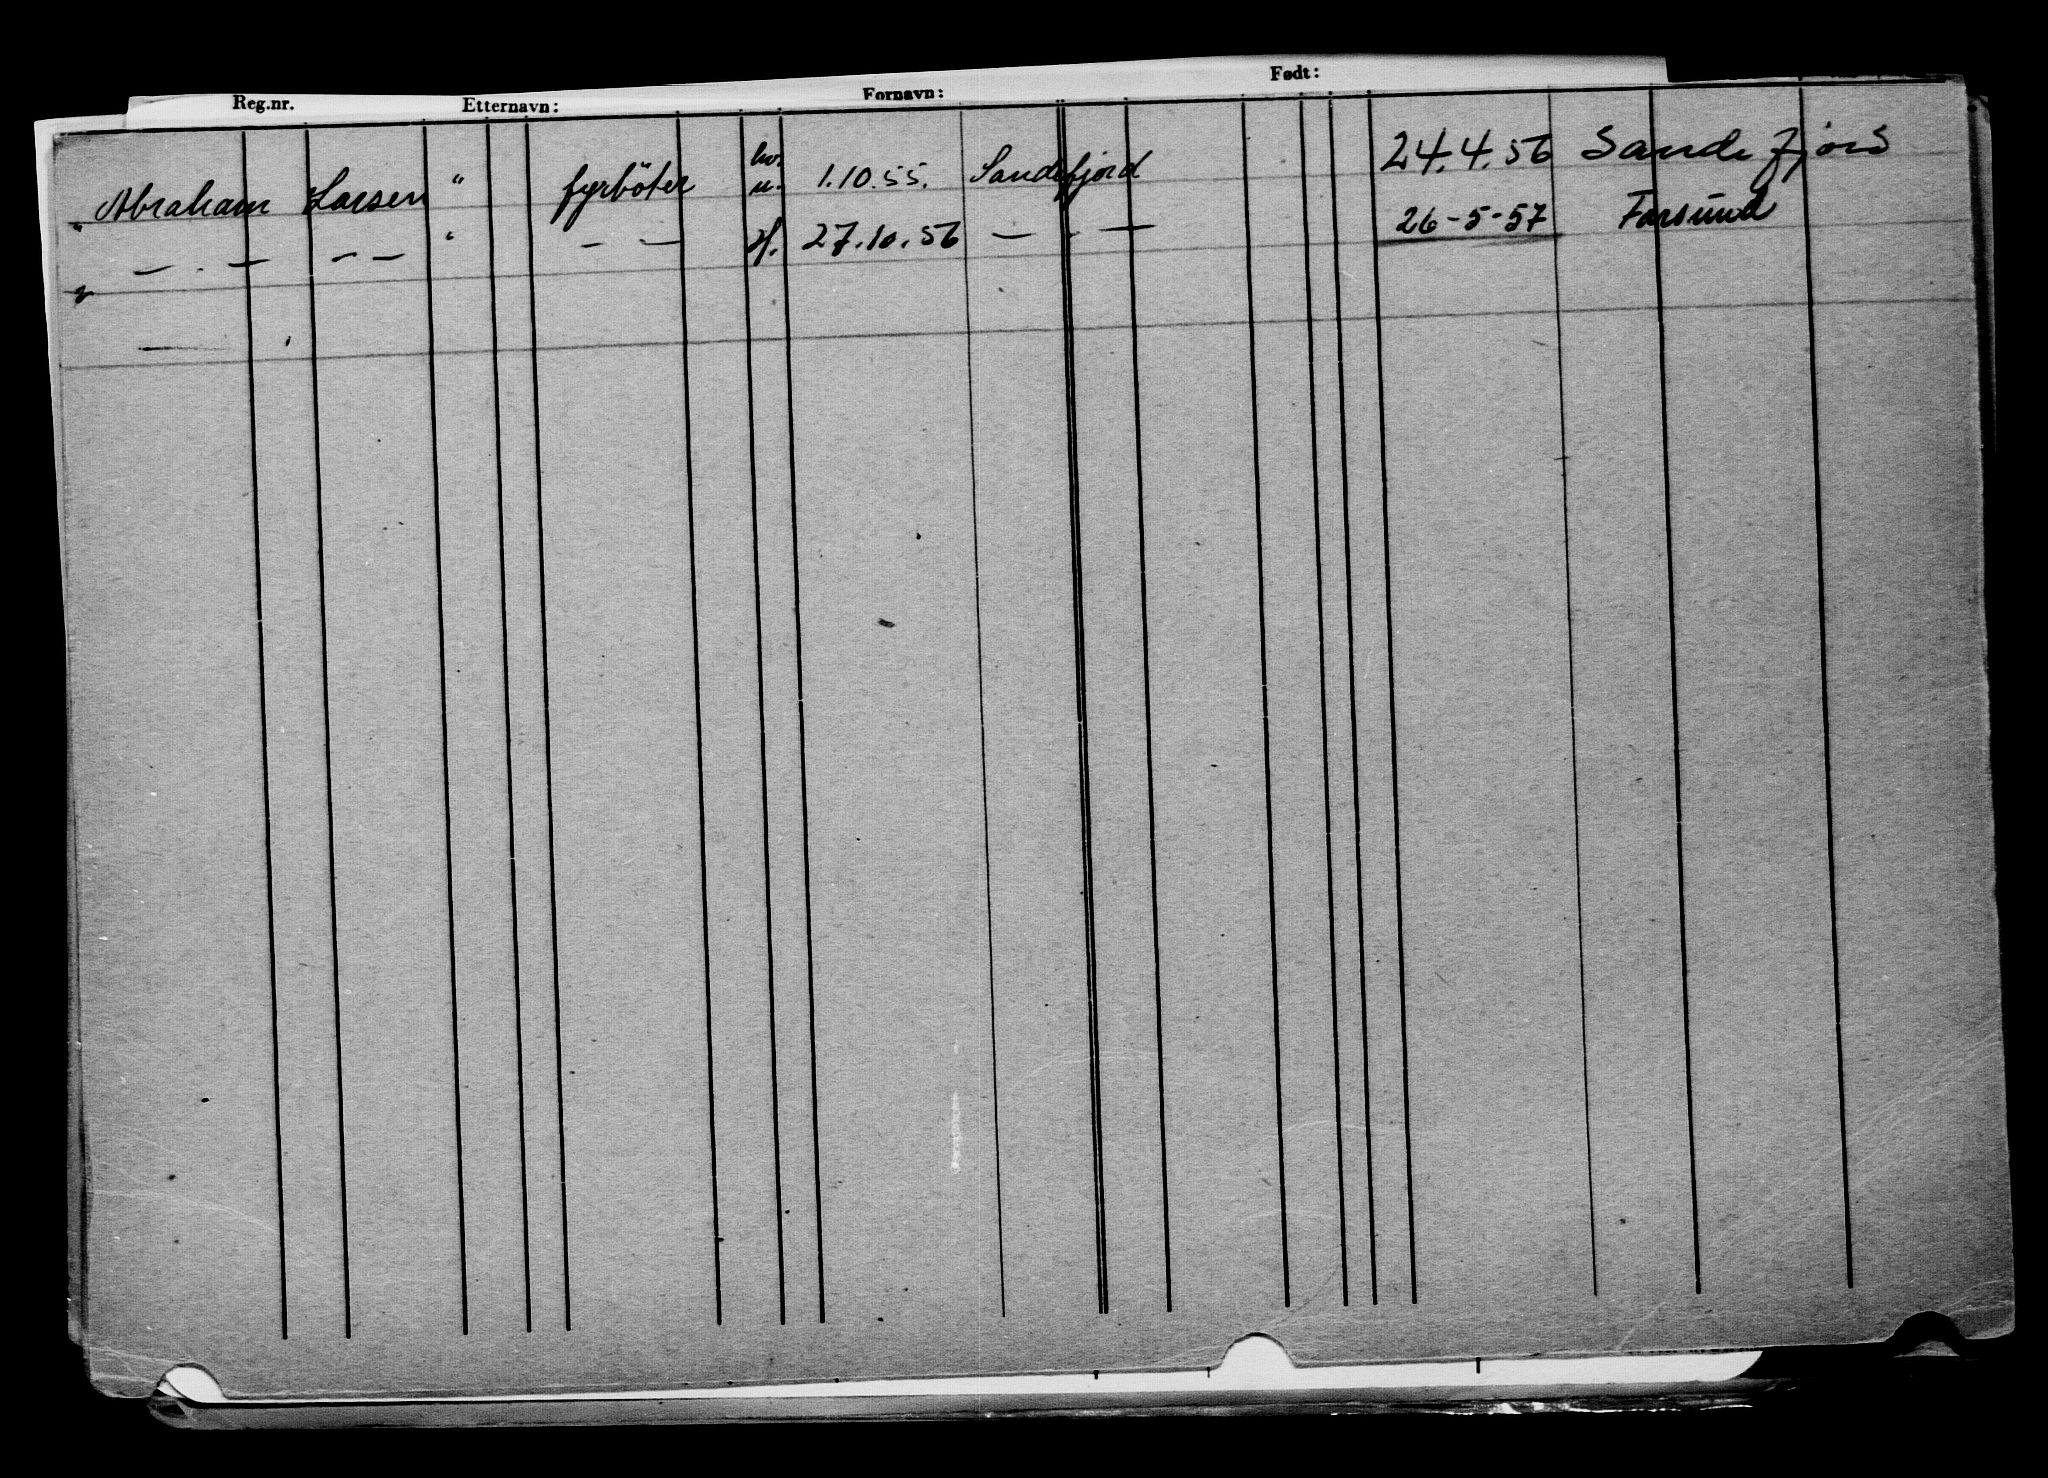 Reg.nr. Etternavn: Fornavn: Født:
" Abraham Larsen " fyrböter hv. u. 1.10.55. Sandefjord 24.4.56 Sandefjord
— . — — — " — — 27.10.56 — . — 26-5-57 Farsund